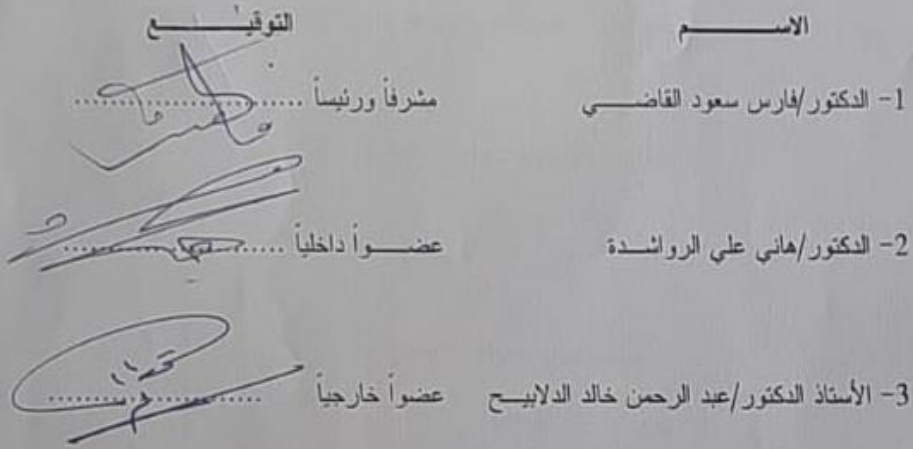 الاســـــــم التوقيـــــــع
1- الدكتور/فارس سعود القاضـــــي مشرفاً ورئيساً ........................
2- الدكتور/هاني علي الرواشـــدة عضـــــواً داخلياً ........................
3- الأستاذ الدكتور/عبد الرحمن خالد الدلابيـــح عضواً خارجياً ........................